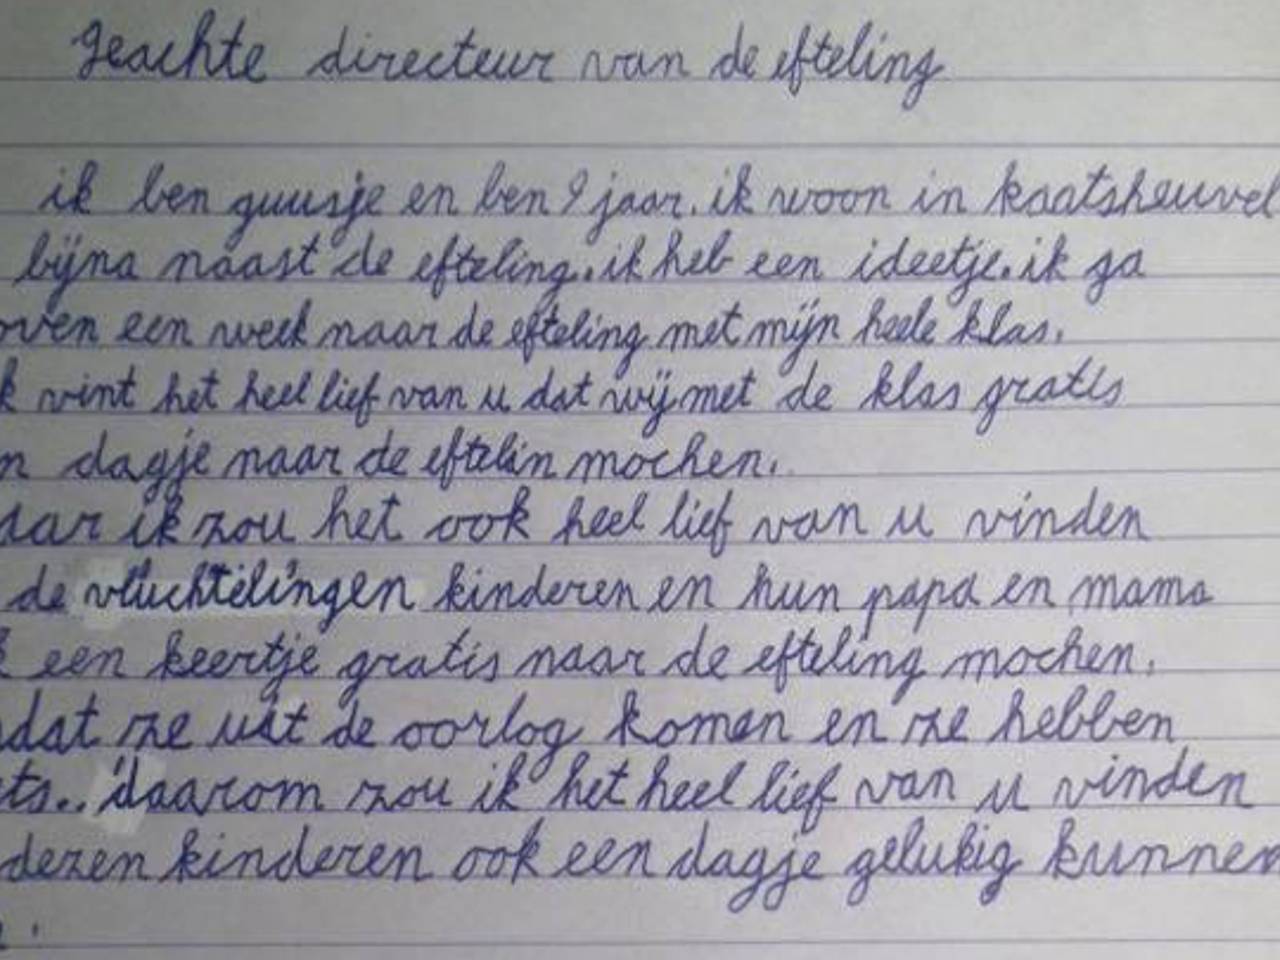 geachte directeur van de efteling
ik ben guusje en ben 9 jaar. ik woon in kaatsheuvel
bijna naast de efteling. ik heb een ideetje. ik ga
oven een week naar de efteling met mijn heele klas.
k vint het heel lief van u dat wij met de klas gratis
n dagje naar de eftelin mochen.
aar ik zou het ook heel lief van u vinden
de vluchtelingen kinderen en hun papa en mama
k een keertje gratis naar de efteling mochen.
dat ze uit de oorlog komen en ze hebben
ts.. daarom zou ik het heel lief van u vinden
dezen kinderen ook een dagje gelukig kunnen